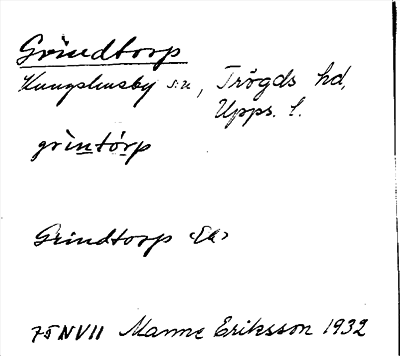 Grindtorp
Kungshusby sn, Trögds hd,
Upps. l.
grìntór̀p
Grindtorp <Ek>
75NVII Manne Eriksson 1932